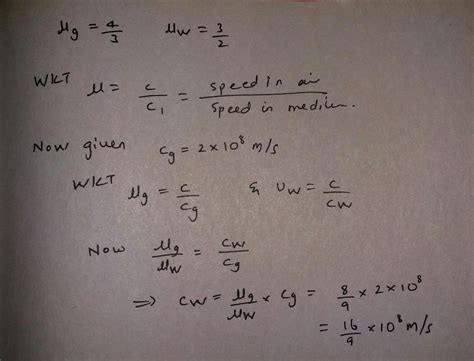 μg = 4/3    μw = 3/2
WKT μ = c/c₁ = speed in air / speed in medium.
Now given cg = 2×10⁸ m/s
WKT μg = c/cg & υw = c/cw
Now μg/μw = cw/cg
⇒ cw = μg/μw × cg = 8/9 × 2×10⁸
= 16/9 ×10⁸ m/s